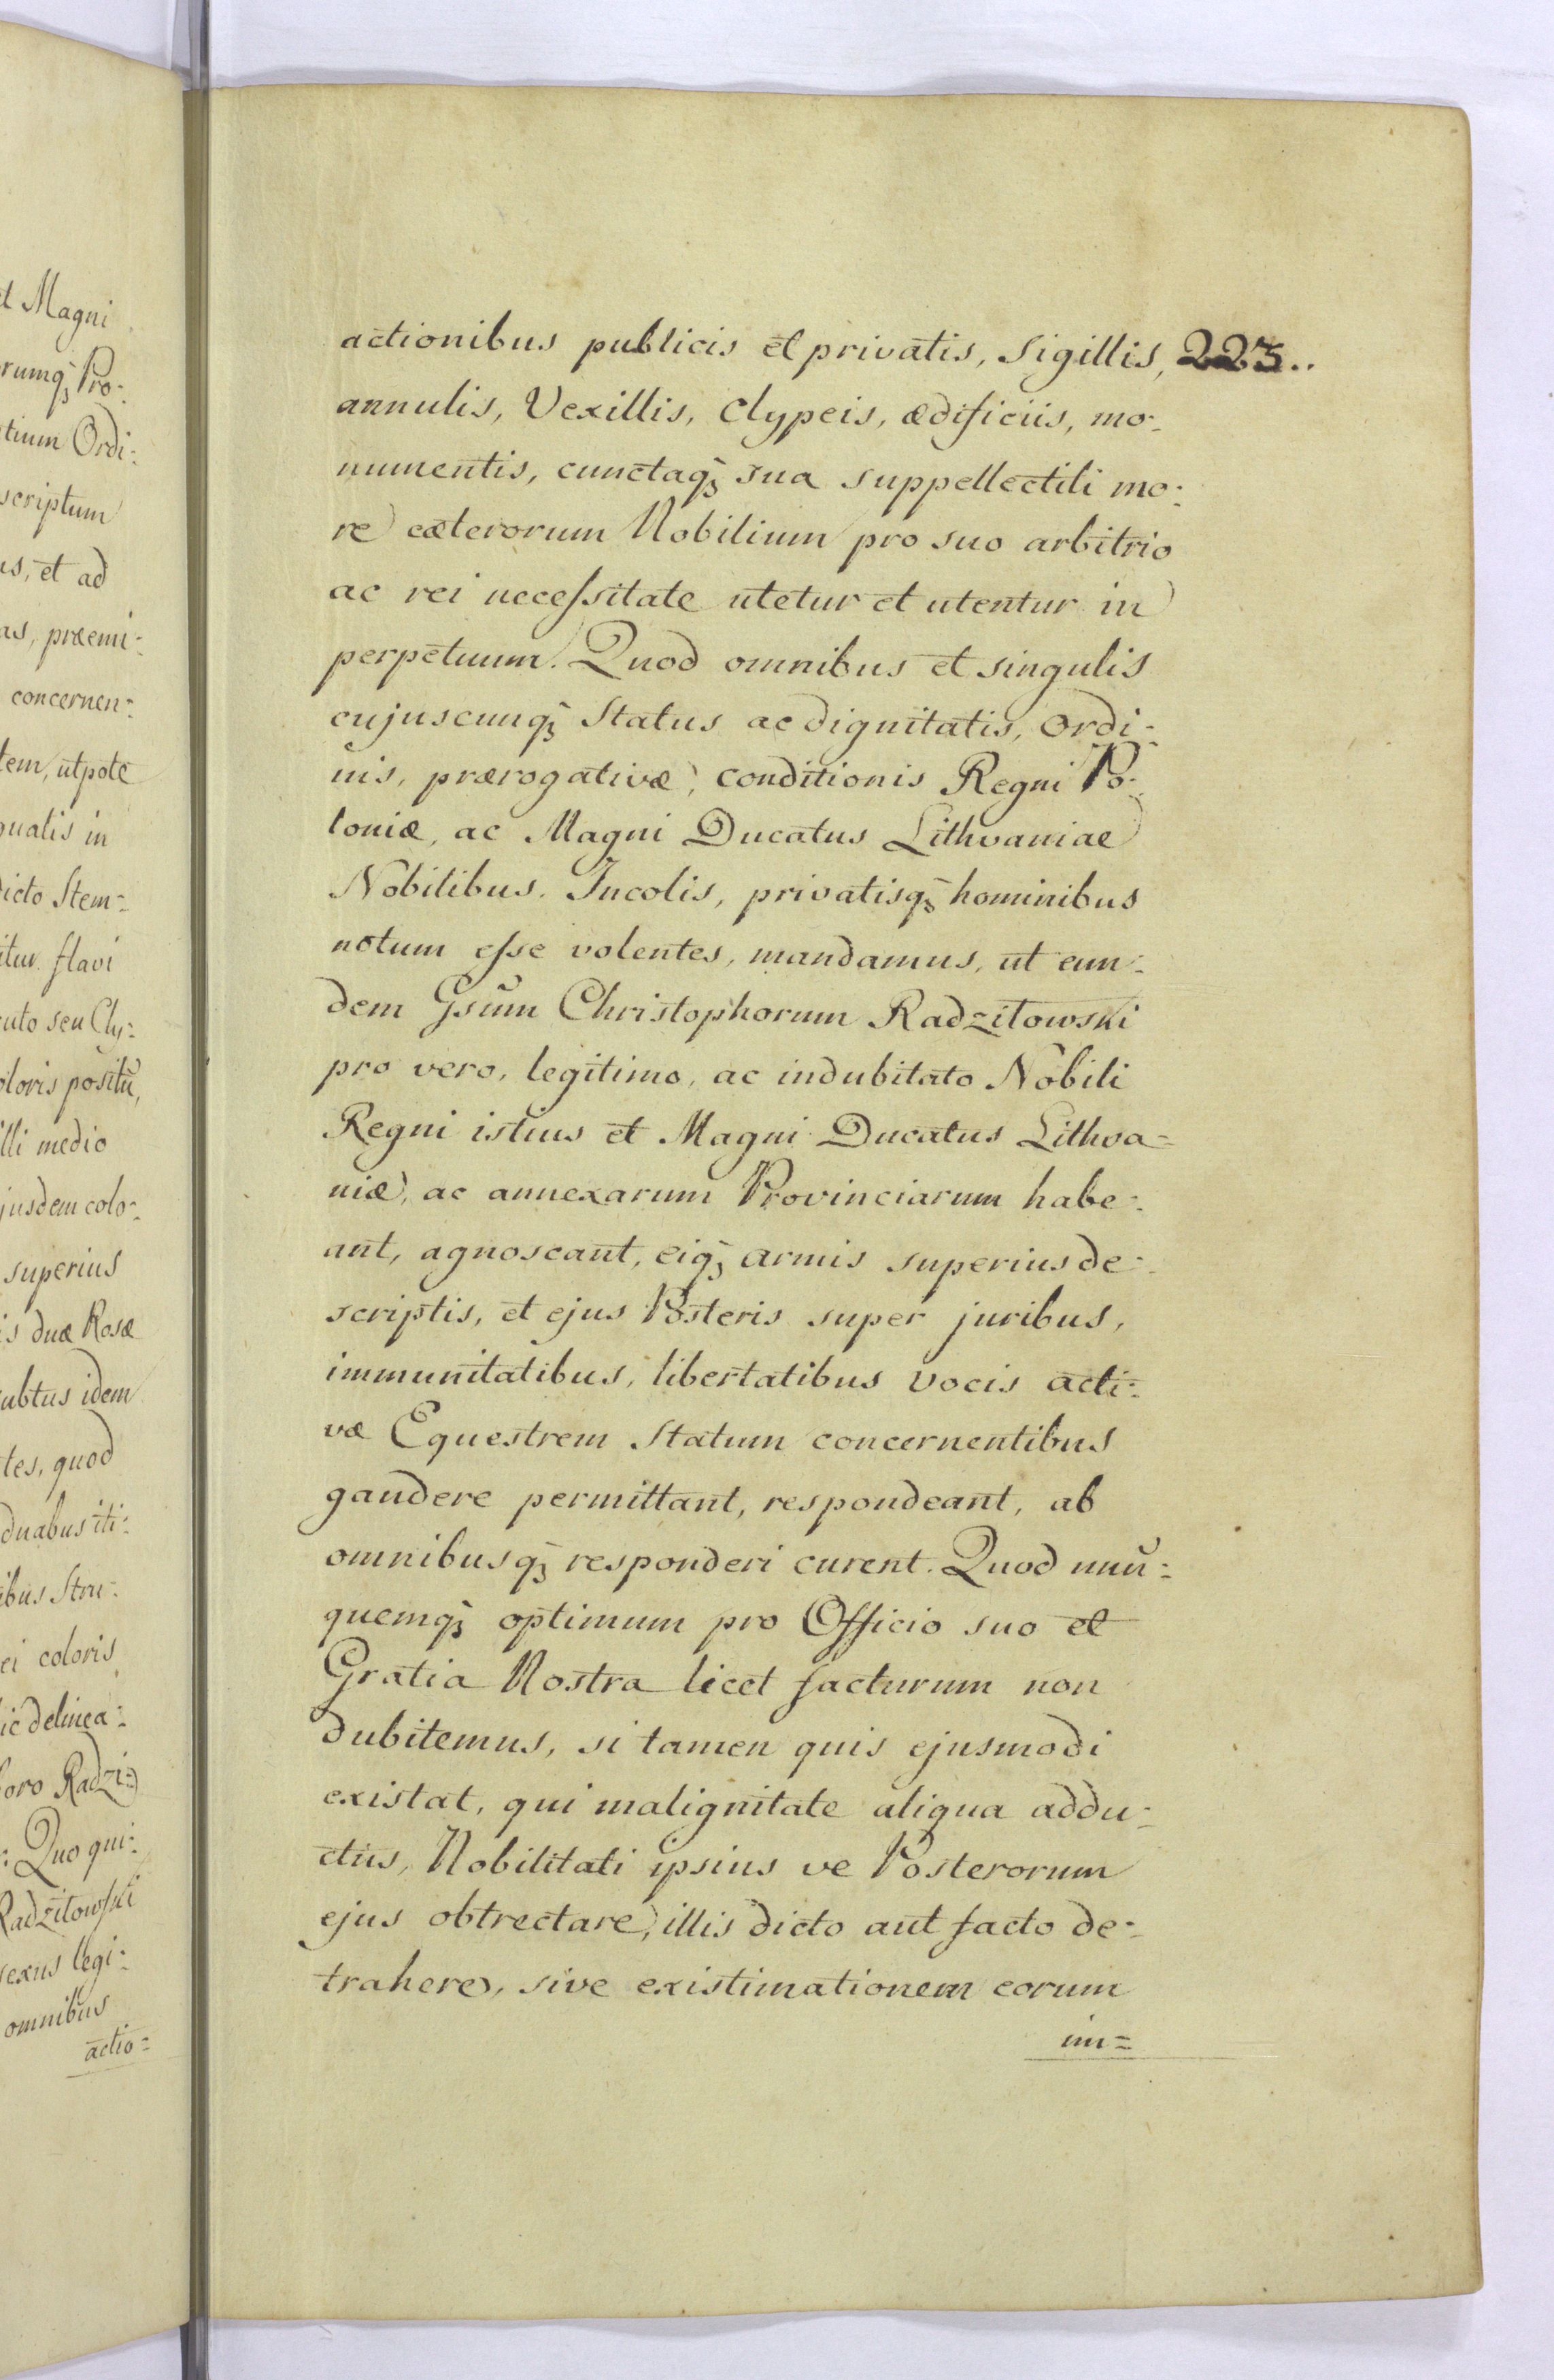 t Magni
rumq̃ Pro-
tium Ordi-
scriptum
us, et ad
as, præemi-
concernen-
tem, utpote
qualis in
dicto Stem-
itur flavi
cuto seu Cly-
oloris positũ,
illi medio
jusdem colo-
superius
is duæ Rosæ
ubtus idem
tes, quod
duabus iti-
ibus Stru-
ei coloris
ic delinea-
foro Radzi-
: Quo qui-
Radzitowski
sexus legi-
omnibus
actio=
actionibus publicis et privatis, Sigillis, 223..
annulis, Vexillis, Clypeis, ædificiis, mo-
numentis, cunctaq̃ sua suppellectili mo-
re cæterorum Nobilium pro suo arbitrio
ac rei necessitate utetur et utentur in
perpetuum. Quod omnibus et singulis
cujuscunq̃ Status ac dignitatis, Ordi-
nis, prærogativæ, conditionis Regni Po-
loniæ, ac Magni Ducatus Lithvaniae
Nobilibus. Incolis, privatisq̃ hominibus
notum esse volentes, mandamus, ut eun-
dem Gsũm Christophorum Radzitowski
pro vero, legitimo, ac indubitato Nobili
Regni istius et Magni Ducatus Lithva-
niæ, ac annexarum Provinciarum habe-
ant, agnoscant, eiq̃ armis superius de-
scriptis, et ejus Posteris super juribus,
immunitatibus, libertatibus vocis acti-
væ Equestrem Statum concernentibus
gaudere permittant, respondeant, ab
omnibusq̃ responderi curent. Quod unũ-
quemq̃ optimum pro Officio suo et
Gratia Nostra licet facturum non
dubitemus, si tamen quis ejusmodi
existat, qui malignitate aliqua addu-
ctus, Nobilitati ipsius ve Posterorum
ejus obtrectare, illis dicto aut facto de-
trahere, sive existimationem eorum
im=